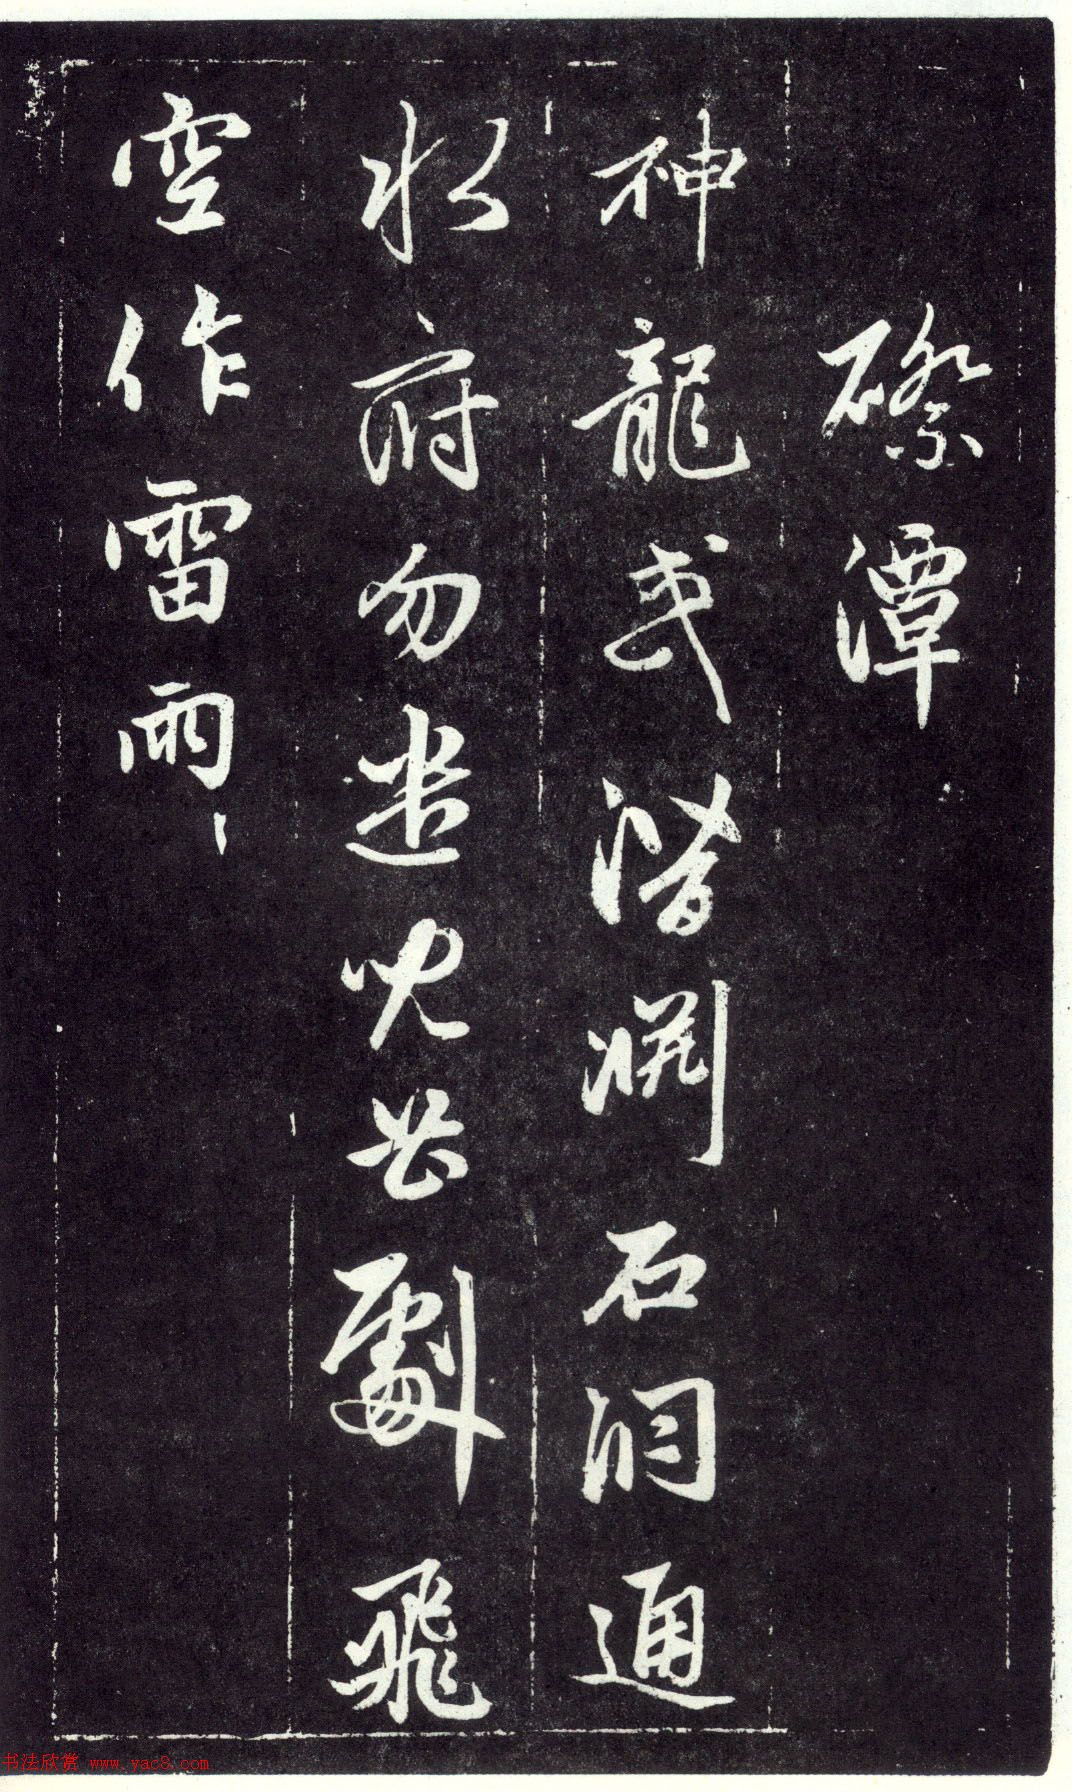 磜潭
神龍或潛淵石洞通
水府勿遣兒曹劇飛
空作雷雨
书法欣赏 www.yac8.com